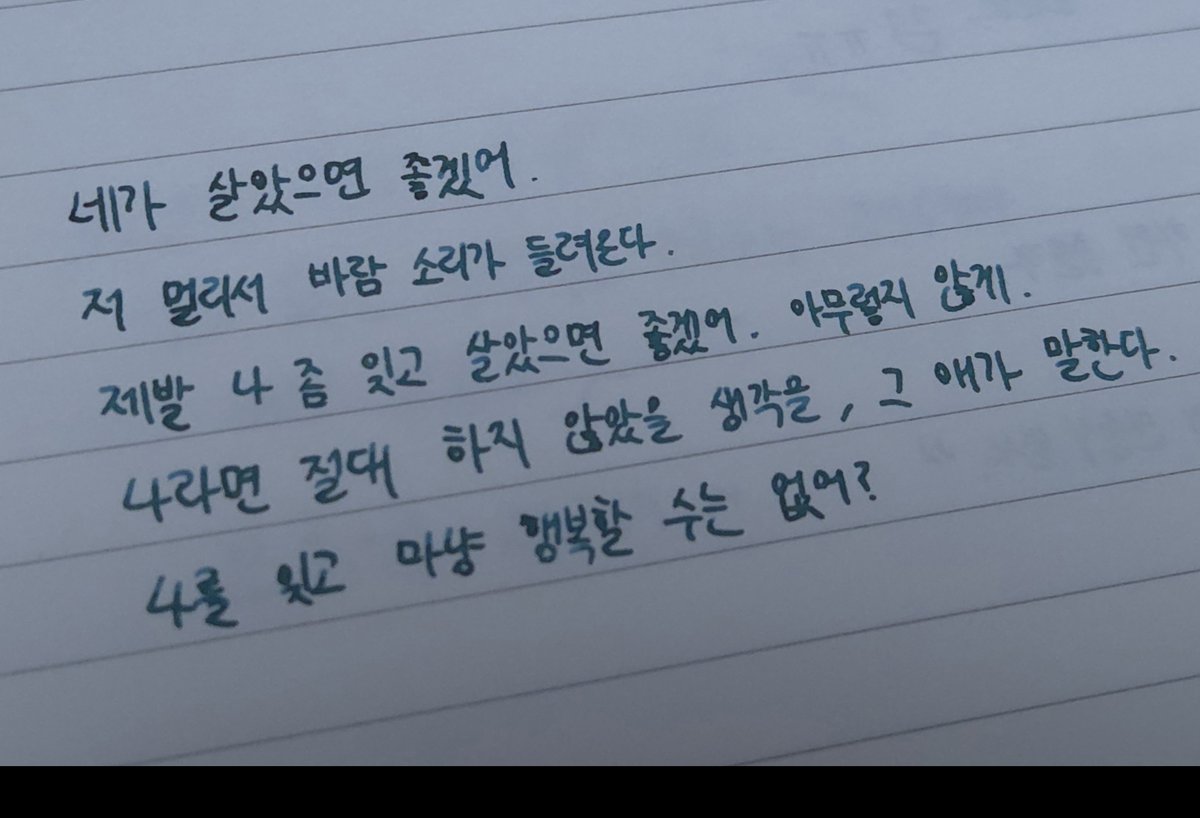 네가 살았으면 좋겠어.
저 멀리서 바람 소리가 들려온다.
제발 나 좀 잊고 살았으면 좋겠어. 아무렇지 않게.
나라면 절대 하지 않았을 생각을, 그 애가 말한다.
나를 잊고 마냥 행복할 수는 없어?